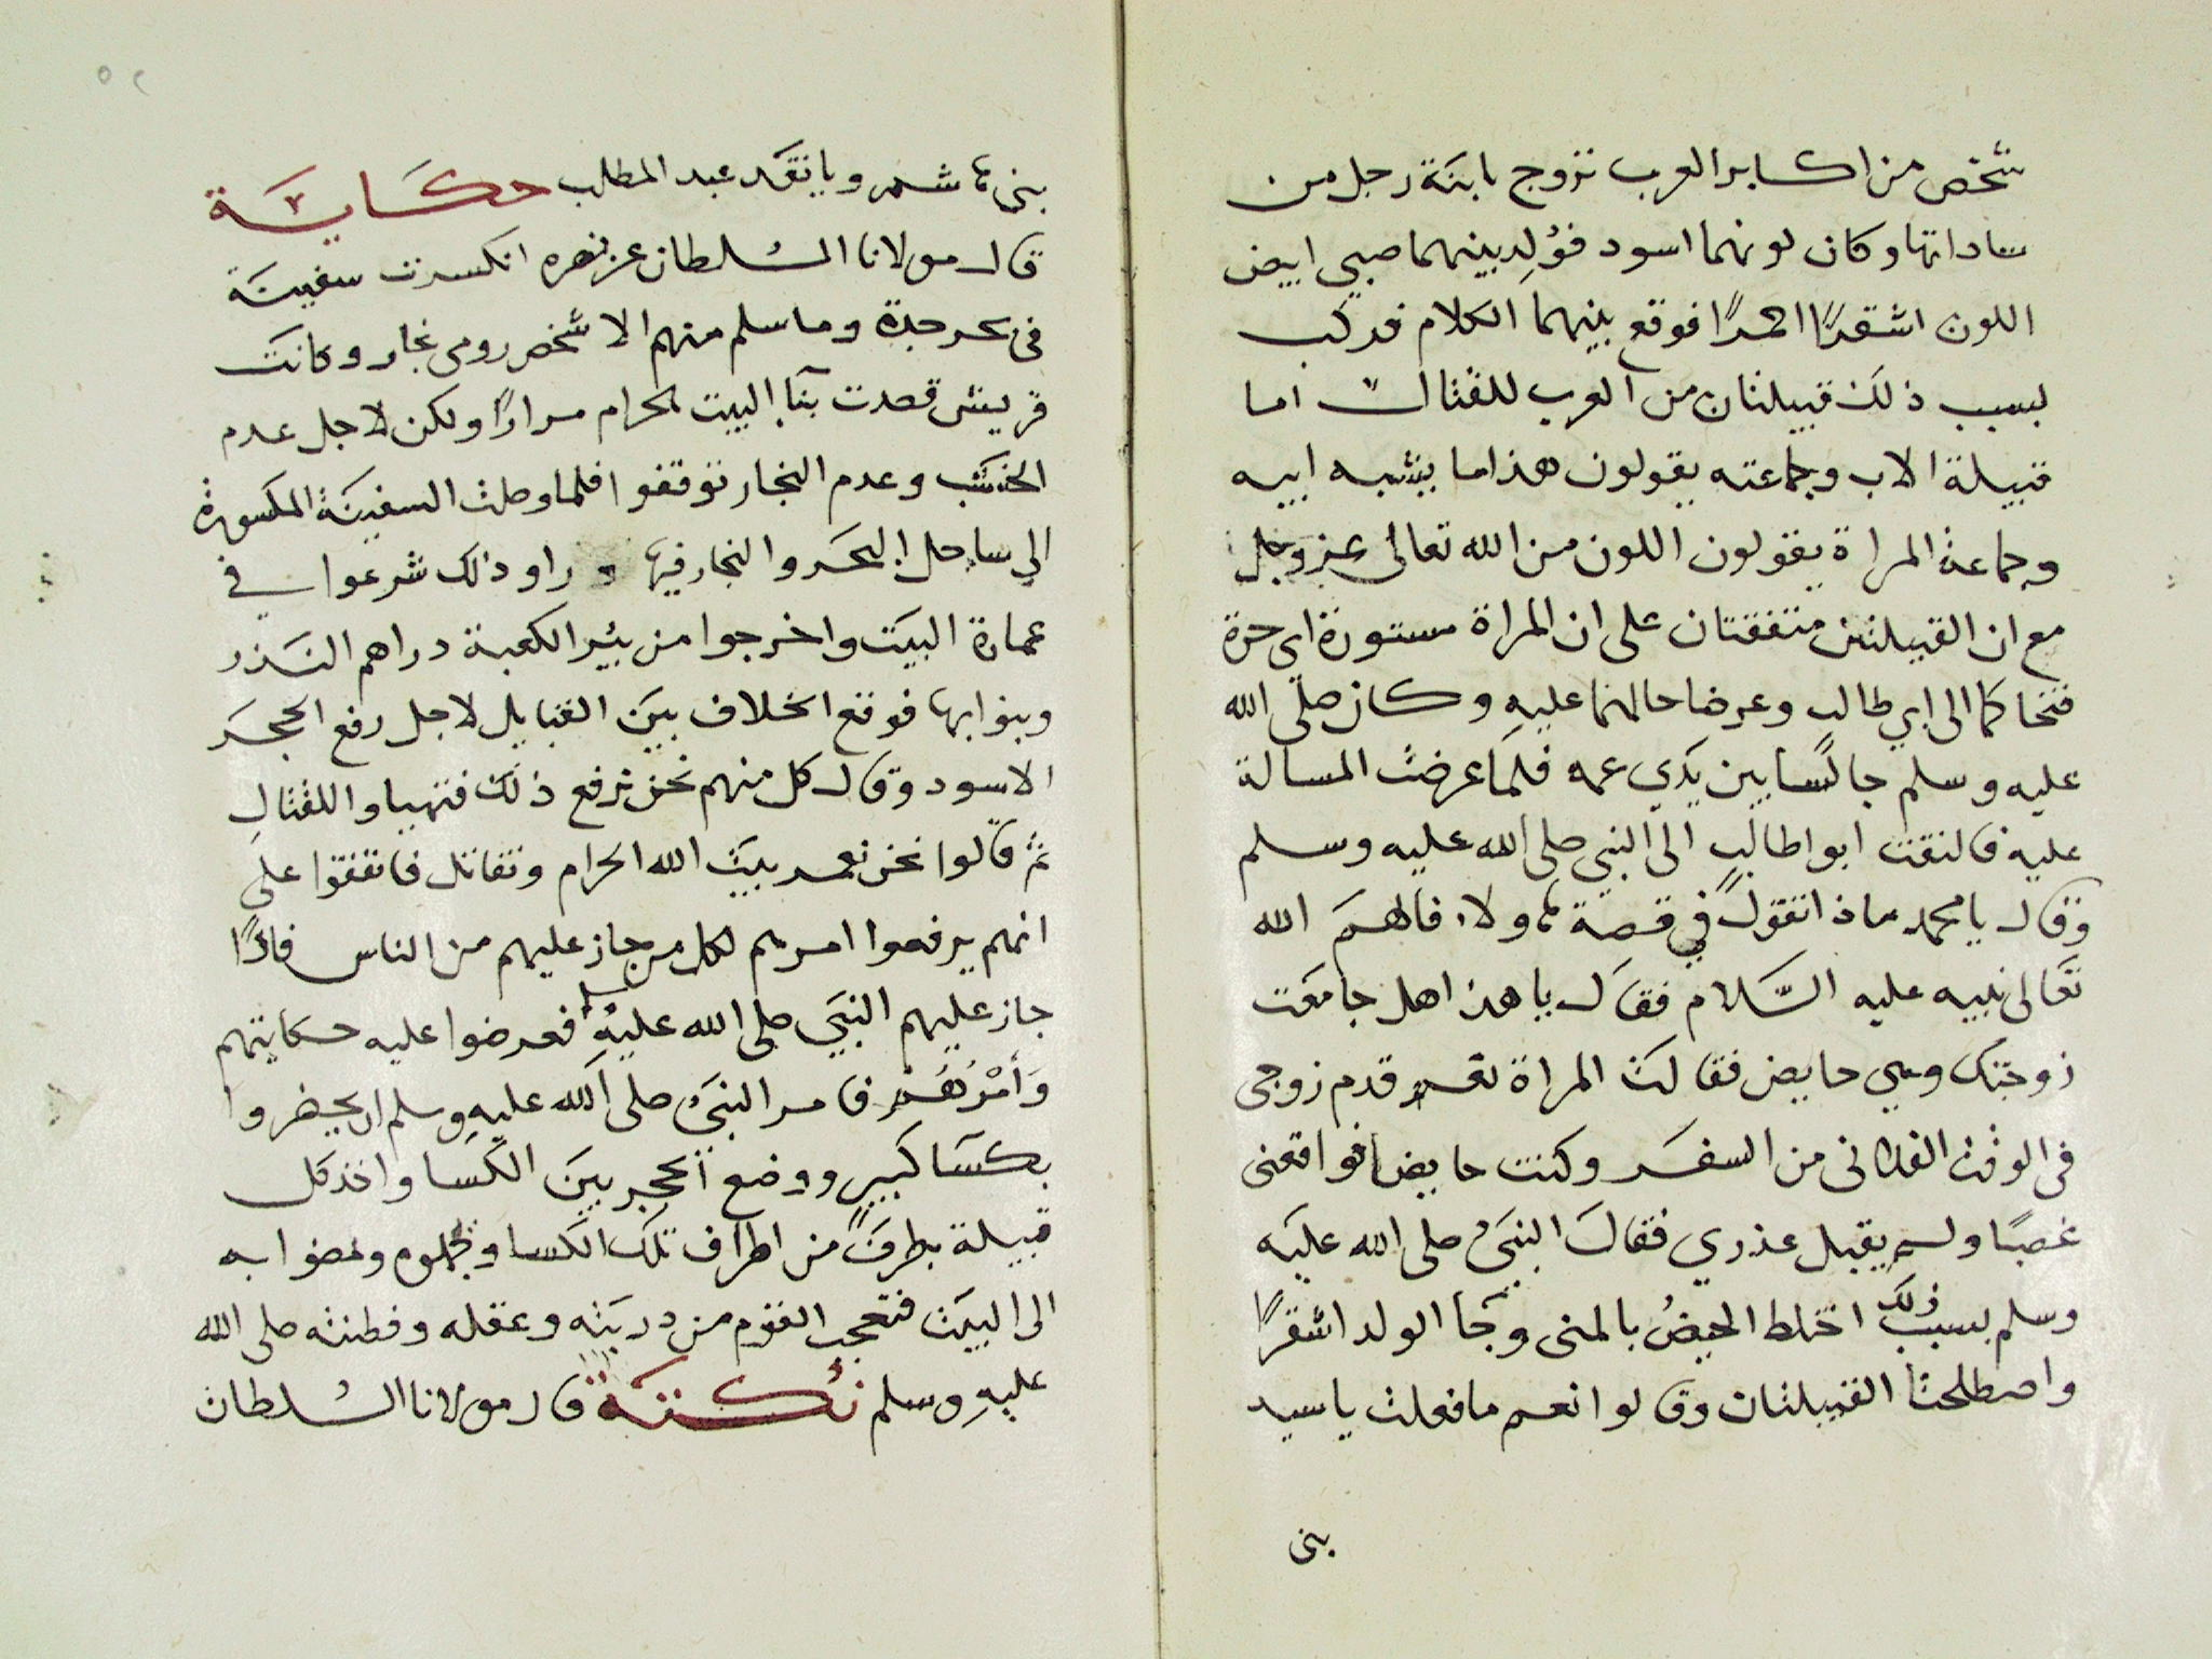 شخص من اكابر العرب تزوج بابنة رجل من
ساداتها وكان لونهما اسود فوُلِد بينهما صبي ابيض
اللون اشقرًا احمرًا فوقع بينهما الكلام فركب
بسبب ذلك قبيلتان من العرب للقتال اما
قبيلة الاب وجماعته يقولون هذا ما يشبه ابيه
وجماعة المراة يقولون اللون من الله تعالى عز وجل
مع ان القبيلتين متفقتان على ان المراة مستورة اي حرة
فتحاكما الى ابي طالب وعرضا حالهما عليهِ وكان صلى الله
عليه وسلم جالسًا بين يدَي عمه فلما عرضت المسالة
عليه فالتفت ابوا طالب الى النبي صلى الله عليه وسلم
وقال يا محمد ماذا تقول في قصة هاولاء فالهمَ الله
تعَالى نبيه عليه السَّلام فقال يا هذا هل جامعَت
زوجتك وهي حايض فقالت المراة نعم قدم زوجى
فى الوقت الفلانى من السفر وكنت حايضا فواقعنى
غصبًا ولم يقبل عذري فقال النبيُ صلى الله عليَه
وسلم بسبب ذلك اختلط الحيضُ بالمنى وجَا الولد اشقرًا
واصطلحتا القبيلتان وقالوا نعم ما فعلت يا سيد
بنى
٥٢
بنى هاشم ويا نقد عبد المطلب حكاية
قال مولانا السُلطان عز نصره انكسرت سفينة
فى بحر جدة وما سلم منهم الا شخص رومى نجار وكانت
قريش قصدت بنآء البيت الحرام مرارًا ولكن لاجل عدم
الخشب وعدم النجار توقفوا فلما وصلت السفينَة المكسورة
الي ساحل البحَر والنجار فيها وراو ذلك شرعوا في
عمارة البيَت واخرجوا من بئير الكعبة دراهم النَذر
وبنوا بها فوقع الخلاف بيَن القبايل لاجل رفع الحجَر
الاسود وقال كل منهم نحن نرفع ذلك فتهياوا للقتالِ
ثم قالوا نحن نعمر بيَت الله الحرام ونتقاتل فاتفقوا على
انهم يرفعوا امرهم لكل من جاز عليهم من الناس فاذًا
جاز عليهم النبَي صلى الله عليهِ وسلم فعرضوا عليه حكايتهم
وَأمْرَهُم فامر النبَيُ صلى الله عليهِ وسلم ان يحضروا
بكسَا كبيرٍ ووضع الحجر بيَن الكَسا واخذ كل
قبيلة بطرفٍ من اطراف تلك الكسا وحملوه ومضوا به
الى البيَت فتعجب القوم من دربَته وعقله وفطنته صلى الله
عليهِ وسلم نُكتة قال مولانا السُلطان